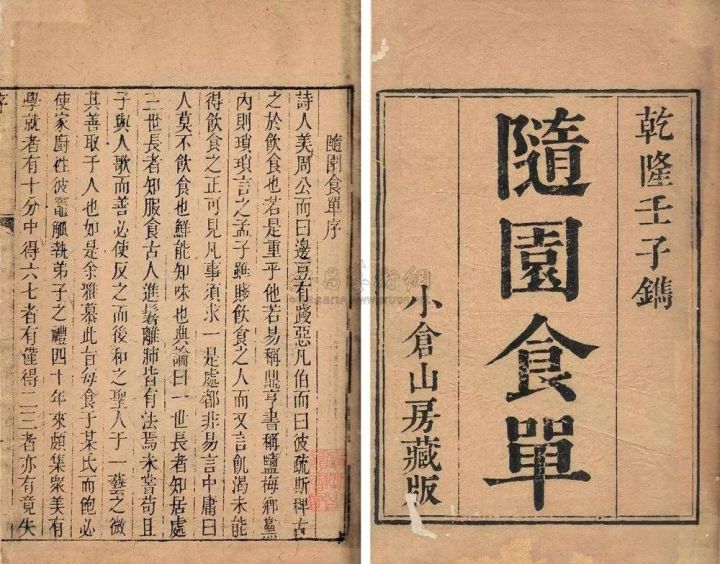 乾隆壬子鐫
隨園食單
小倉山房藏版
隨園食單序
詩人美周公而曰邊豆有踐惡凡伯而曰彼疏斯稗古
之於飲食也若是重乎他若易稱鼎亨書稱鹽梅鄉黨
內則瑣瑣言之孟子雖賤飲食之人而又言飢渴未能
得飲食之正可見凡事須求一是處都非易言中庸曰
人莫不飲食也鮮能知味也典論曰一世長者知居處
三世長者知服食古人進鬐離肺皆有法焉未嘗苟且
子與人歌而善必使反之而後和之聖人于一藝之微
其善取于人也如是余雅慕此旨每食于某氏而飽必
使家廚往彼竈觚執弟子之禮四十年來頗集眾美有
學就者有十分中得六七者有僅得二三者亦有竟失